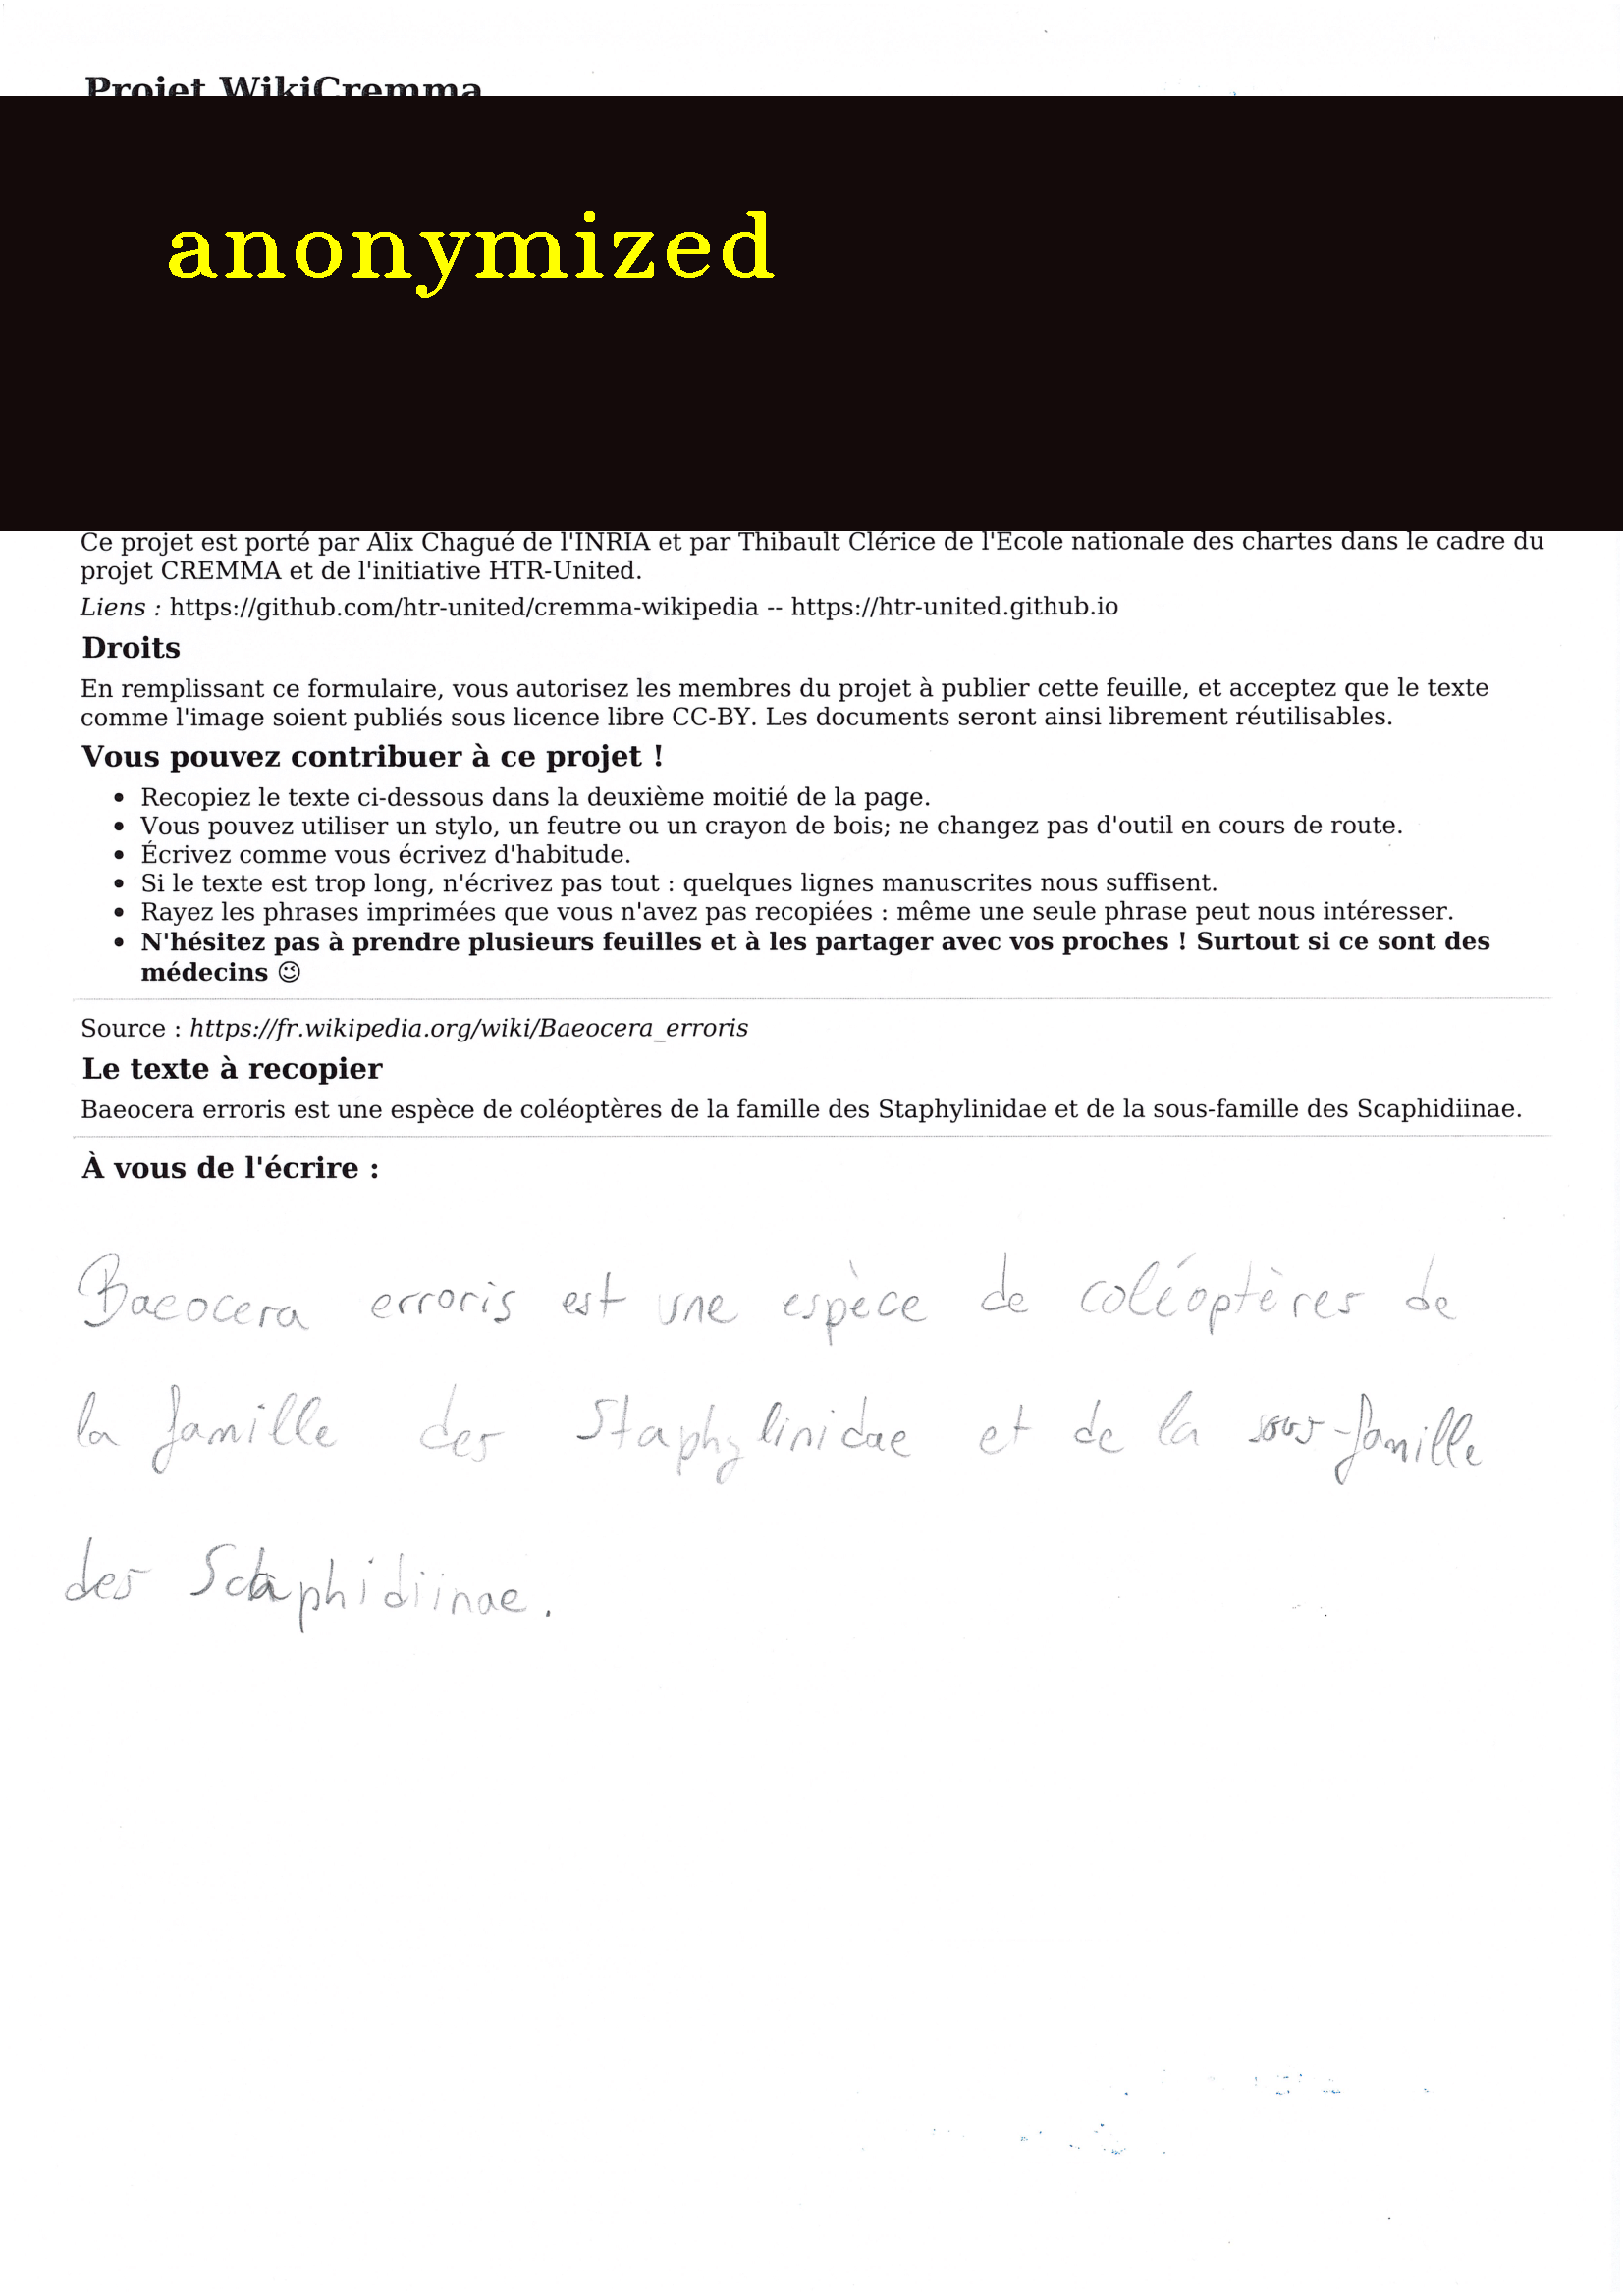 Projet WikiCremma
anonymized
Ce projet est porté par Alix Chagué de l'INRIA et par Thibault Clérice de l'École nationale des chartes dans le cadre du
projet CREMMA et de l'initiative HTR-United.
Liens : https://github.com/htr-united/cremma-wikipedia -- https://htr-united.github.io
Droits
En remplissant ce formulaire, vous autorisez les membres du projet à publier cette feuille, et acceptez que le texte
comme l'image soient publiés sous licence libre CC-BY. Les documents seront ainsi librement réutilisables.
Vous pouvez contribuer à ce projet !
• Recopiez le texte ci-dessous dans la deuxième moitié de la page.
• Vous pouvez utiliser un stylo, un feutre ou un crayon de bois; ne changez pas d'outil en cours de route.
• Écrivez comme vous écrivez d'habitude.
• Si le texte est trop long, n'écrivez pas tout : quelques lignes manuscrites nous suffisent.
• Rayez les phrases imprimées que vous n'avez pas recopiées : même une seule phrase peut nous intéresser.
• N'hésitez pas à prendre plusieurs feuilles et à les partager avec vos proches ! Surtout si ce sont des
médecins 😉
Source : https://fr.wikipedia.org/wiki/Baeocera_erroris
Le texte à recopier
Baeocera erroris est une espèce de coléoptères de la famille des Staphylinidae et de la sous-famille des Scaphidiinae.
À vous de l'écrire :
Baeocera erroris est une espèce de coléoptères de
la famille des Staphylinidae et de la sous-famille
des Scaphidiinae.